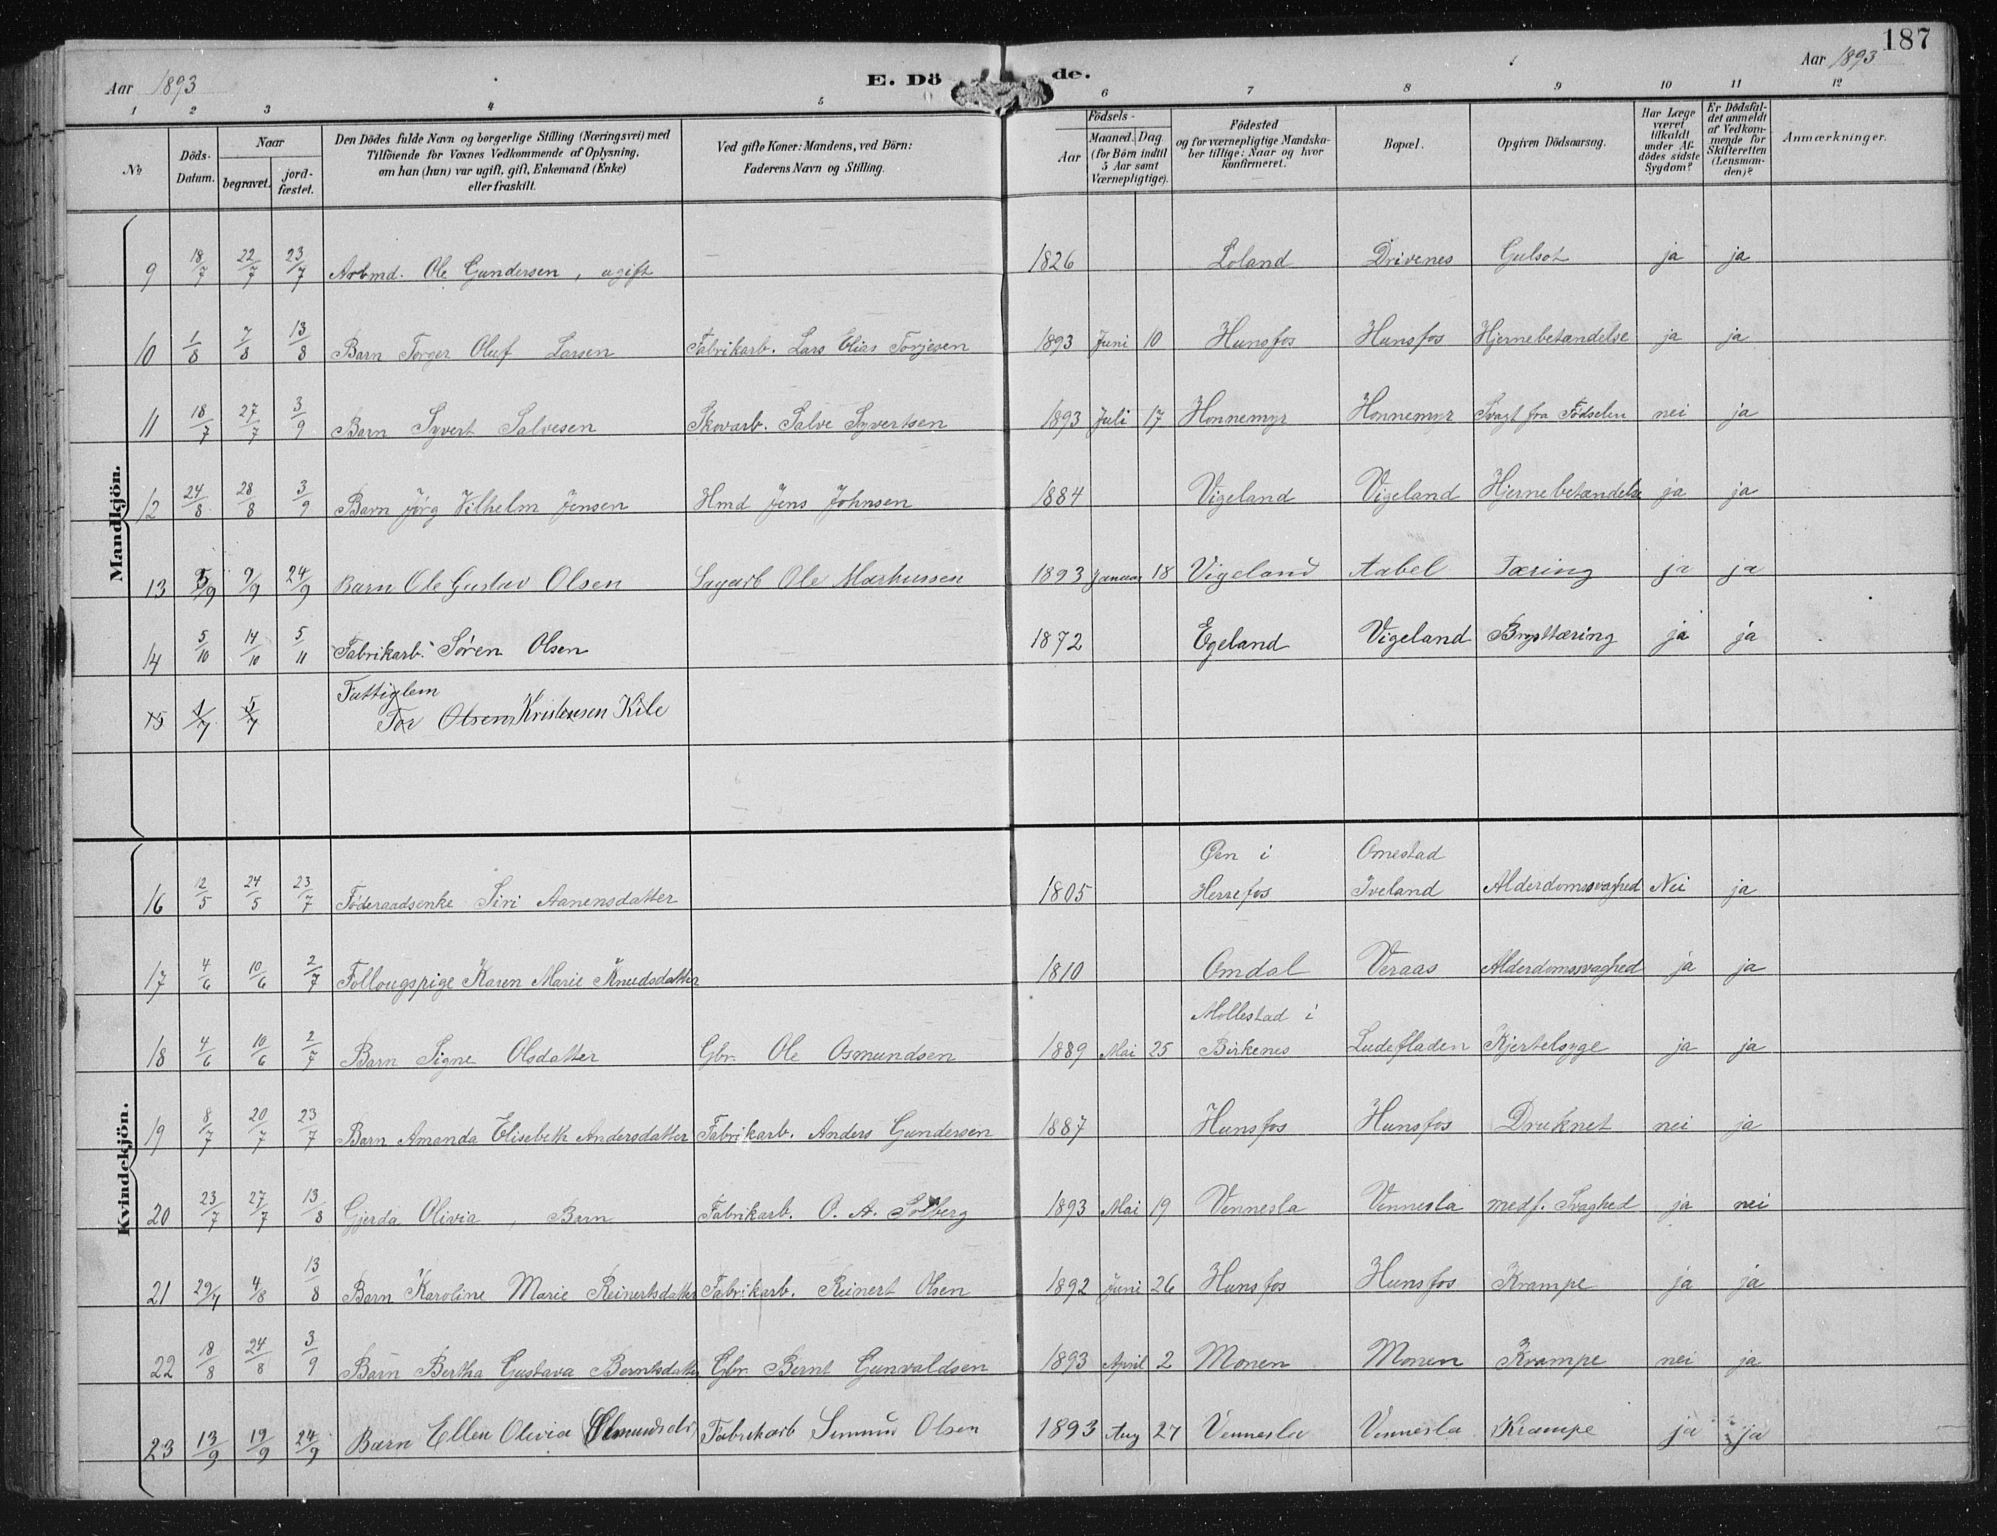 187
Aar 1893
E. Döde.
Aar 1893
1 2 3 4 5 6 7 8 9 10 11 12
No
Döds-Datum.
Naar
begravet.
jord-fæstet.
Den Dödes fulde Navn og borgerlige Stilling (Næringsvei) med
Tilföiende for Voxnes Vedkommende af Oplysning,
om han (hun) var ugift, gift, Enkemand (Enke)
eller fraskilt.
Ved gifte Koner: Mandens, ved Börn:
Faderens Navn og Stilling.
Födsels-
Aar
Maaned. Dag.
(for Börn indtil
5 Aar samt
Værnepligtige).
Födested
og for værnepligtige Mandska-
ber tillige: Naar og hvor
konfirmeret.
Bopæl.
Opgiven Dödsaarsag.
Har Læge
været
tilkaldt
under Af-
dödes sidste
Sygdom?
Er Dödsfal-
det anmeldt
af Vedkom-
mende for
Skifteretten
(Lensman-
den)?
Anmærkninger.
Mandkjön.
9 18/7 22/7 23/7 Arbmd. Ole Gundersen, ugift 1826 Loland Drivenes Gulsot ja ja
10 1/8 7/8 13/8 Barn Torger Oluf Larsen Fabrikarb. Lars Elias Torjesen 1893 Juni 10 Hunsfos Hunsfos Hjernebetændelse ja ja
11 18/7 27/7 3/9 Barn Syvert Salvesen Skovarb. Salve Syvertsen 1893 Juli 17 Honnemyr Honnemyr Svagt fra Fødselen nei ja
12 24/8 28/8 3/9 Barn Jørg Vilhelm Jensen Hmd Jens Johnsen 1884 Vigeland Vigeland Hjernebetændelse ja ja
13 5/9 9/9 24/9 Barn Ole Gustav Olsen Sagarb Ole Markussen 1893 Januar 18 Vigeland Aabel Tæring ja ja
14 5/10 14/10 5/11 Fabrikarb. Søren Olsen 1872 Egeland Vigeland Brysttæring ja ja
Fattiglem
15 1/7 5/7 Tor Olsen Kristensen Kile
Kvindekjön.
Øen i Omestad
16 12/5 24/5 23/7 Føderaadsenke Siri Aanensdatter 1805 Herrefos Iveland Alderdomssvaghed Nei ja
17 4/6 10/6 2/7 Follougspige Karen Marie Knudsdatter 1810 Omdal Veraas Alderdomssvaghed ja ja
Mollestad i
18 4/6 10/6 2/7 Barn Signe Olsdatter Gbr. Ole Osmundsen 1889 Mai 25 Birkenes Ludefladen Kjertelsyge ja ja
19 8/7 20/7 23/7 Barn Amanda Elisebeth Andersdatter Fabrikarb. Anders Gundersen 1887 Hunsfos Hunsfos Druknet nei ja
20 23/7 27/7 13/8 Gjerda Olivia, Barn Fabrikarb. O. A. Solberg 1893 Mai 19 Vennesla Vennesla medf. Svaghed ja nei
21 29/7 4/8 13/8 Barn Karoline Marie Reinertsdatter Fabrikarb. Reinert Olsen 1892 Juni 26 Hunsfos Hunsfos Krampe ja ja
22 18/8 24/8 3/9 Barn Bertha Gustava Berntsdatter Gbr. Bernt Gunvaldsen 1893 April 2 Monen Monen Krampe nei ja
23 13/9 19/9 24/9 Barn Ellen Olivia Fabrikarb Olsen 1893 Aug 27 Vennesla Vennesla Krampe ja ja